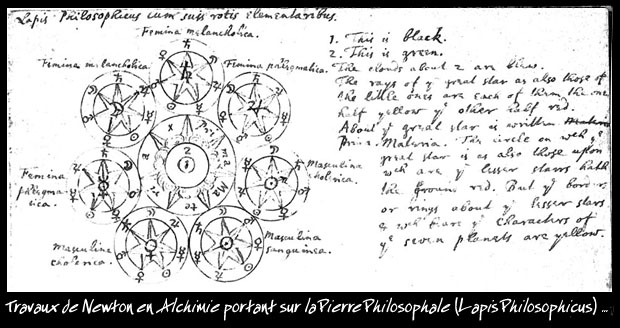 Lapis Philosophicus cum suis rotis elementaribus.
Femina melancholica.
Fimina mلancholica.
Fimina phlegmatica.
Femina
phlegma
tica.
Masculina
cholerica.
masculina
cholerica.
Masculina
sanguinea.
1
2
1. This is black.
2. This is green.
The clouds about 2 are blew.
The rays of yᵉ great star as also those of
the little ones are each of them the one
half yellow yᵉ other half red.
About yᵉ great star is written
Prima Materia. The circle on wch yᵉ
great star is as also those upon
wch are yᵉ lesser starrs hath
the ground red. But yᵉ borders
or rings about yᵉ lesser stars
wch bears yᵉ characters of
yᵉ seven planets are yellow.
Travaux de Newton en Alchimie portant sur la Pierre Philosophale (Lapis Philosophicus) ...